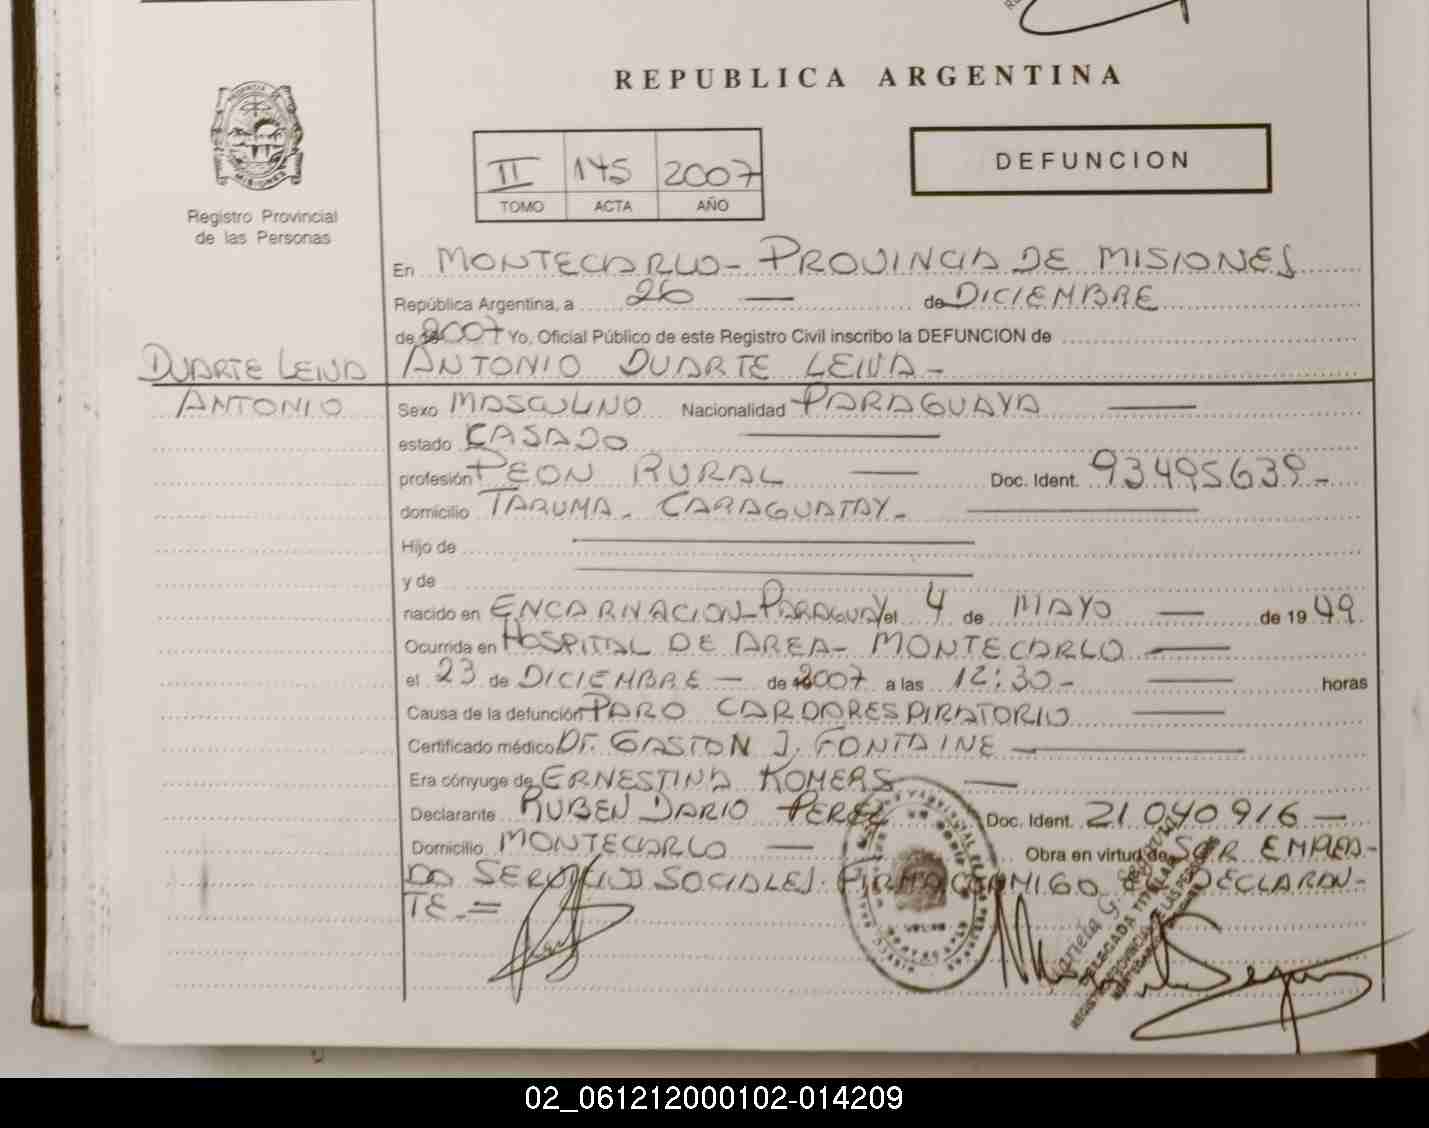 REPUBLICA ARGENTINA
II 145 2007
TOMO ACTA AÑO
DEFUNCION
PROVINCIA DE
MISIONES
Registro Provincial
de las Personas
En MONTECARLO - PROVINCIA DE MISIONES
República Argentina, a 26 — de DICIEMBRE
de 2007 Yo, Oficial Público de este Registro Civil inscribo la DEFUNCION de
ANTONIO DUARTE LEIVA -
DUARTE LEIVA
ANTONIO
Sexo MASCULINO Nacionalidad PARAGUAYA
estado CASADO
profesión PEON RURAL — Doc. Ident. 93495639 -
domicilio TARUMA - CARAGUATAY -
Hijo de
y de
nacido en ENCARNACION - PARAGUAY el 4 de MAYO — de 19 49
Ocurrida en HOSPITAL DE AREA - MONTECARLO
el 23 de DICIEMBRE — de 2007 a las 12:30 - horas
Causa de la defunción PARO CARDORESPIRATORIO
Certificado médico Dr. GASTON J. FONTAINE
Era cónyuge de ERNESTINA KOMERS
Declarante RUBEN DARIO PEREZ Doc. Ident. 21040916 —
Domicilio MONTECARLO — Obra en virtud de SER EMPLEA-
DO SERVICIOS SOCIALES. FIRMA CONMIGO DECLARAN-
TE. =
DELEGADA TITULAR
02_061212000102-014209